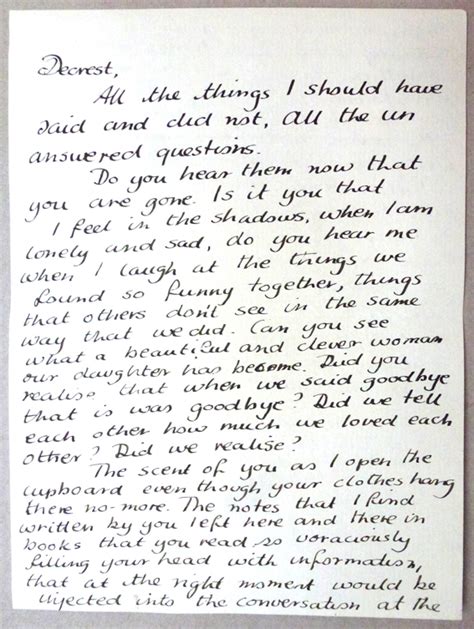 Dearest,
All the things I should have
said and did not, all the un
answered questions.
Do you hear them now that
you are gone. Is it you that
I feel in the shadows, when I am
lonely and sad, do you hear me
when I laugh at the things we
found so funny together, things
that others don't see in the same
way that we did. Can you see
what a beautiful and clever woman
our daughter has become. Did you
realise that when we said goodbye
that is was goodbye? Did we tell
each other how much we loved each
other? Did we realise?
The scent of you as I open the
cupboard even though your clothes hang
there no-more. The notes that I find
written by you left here and there in
books that you read so voraciously
filling your head with information,
that at the right moment would be
injected into the conversation at the